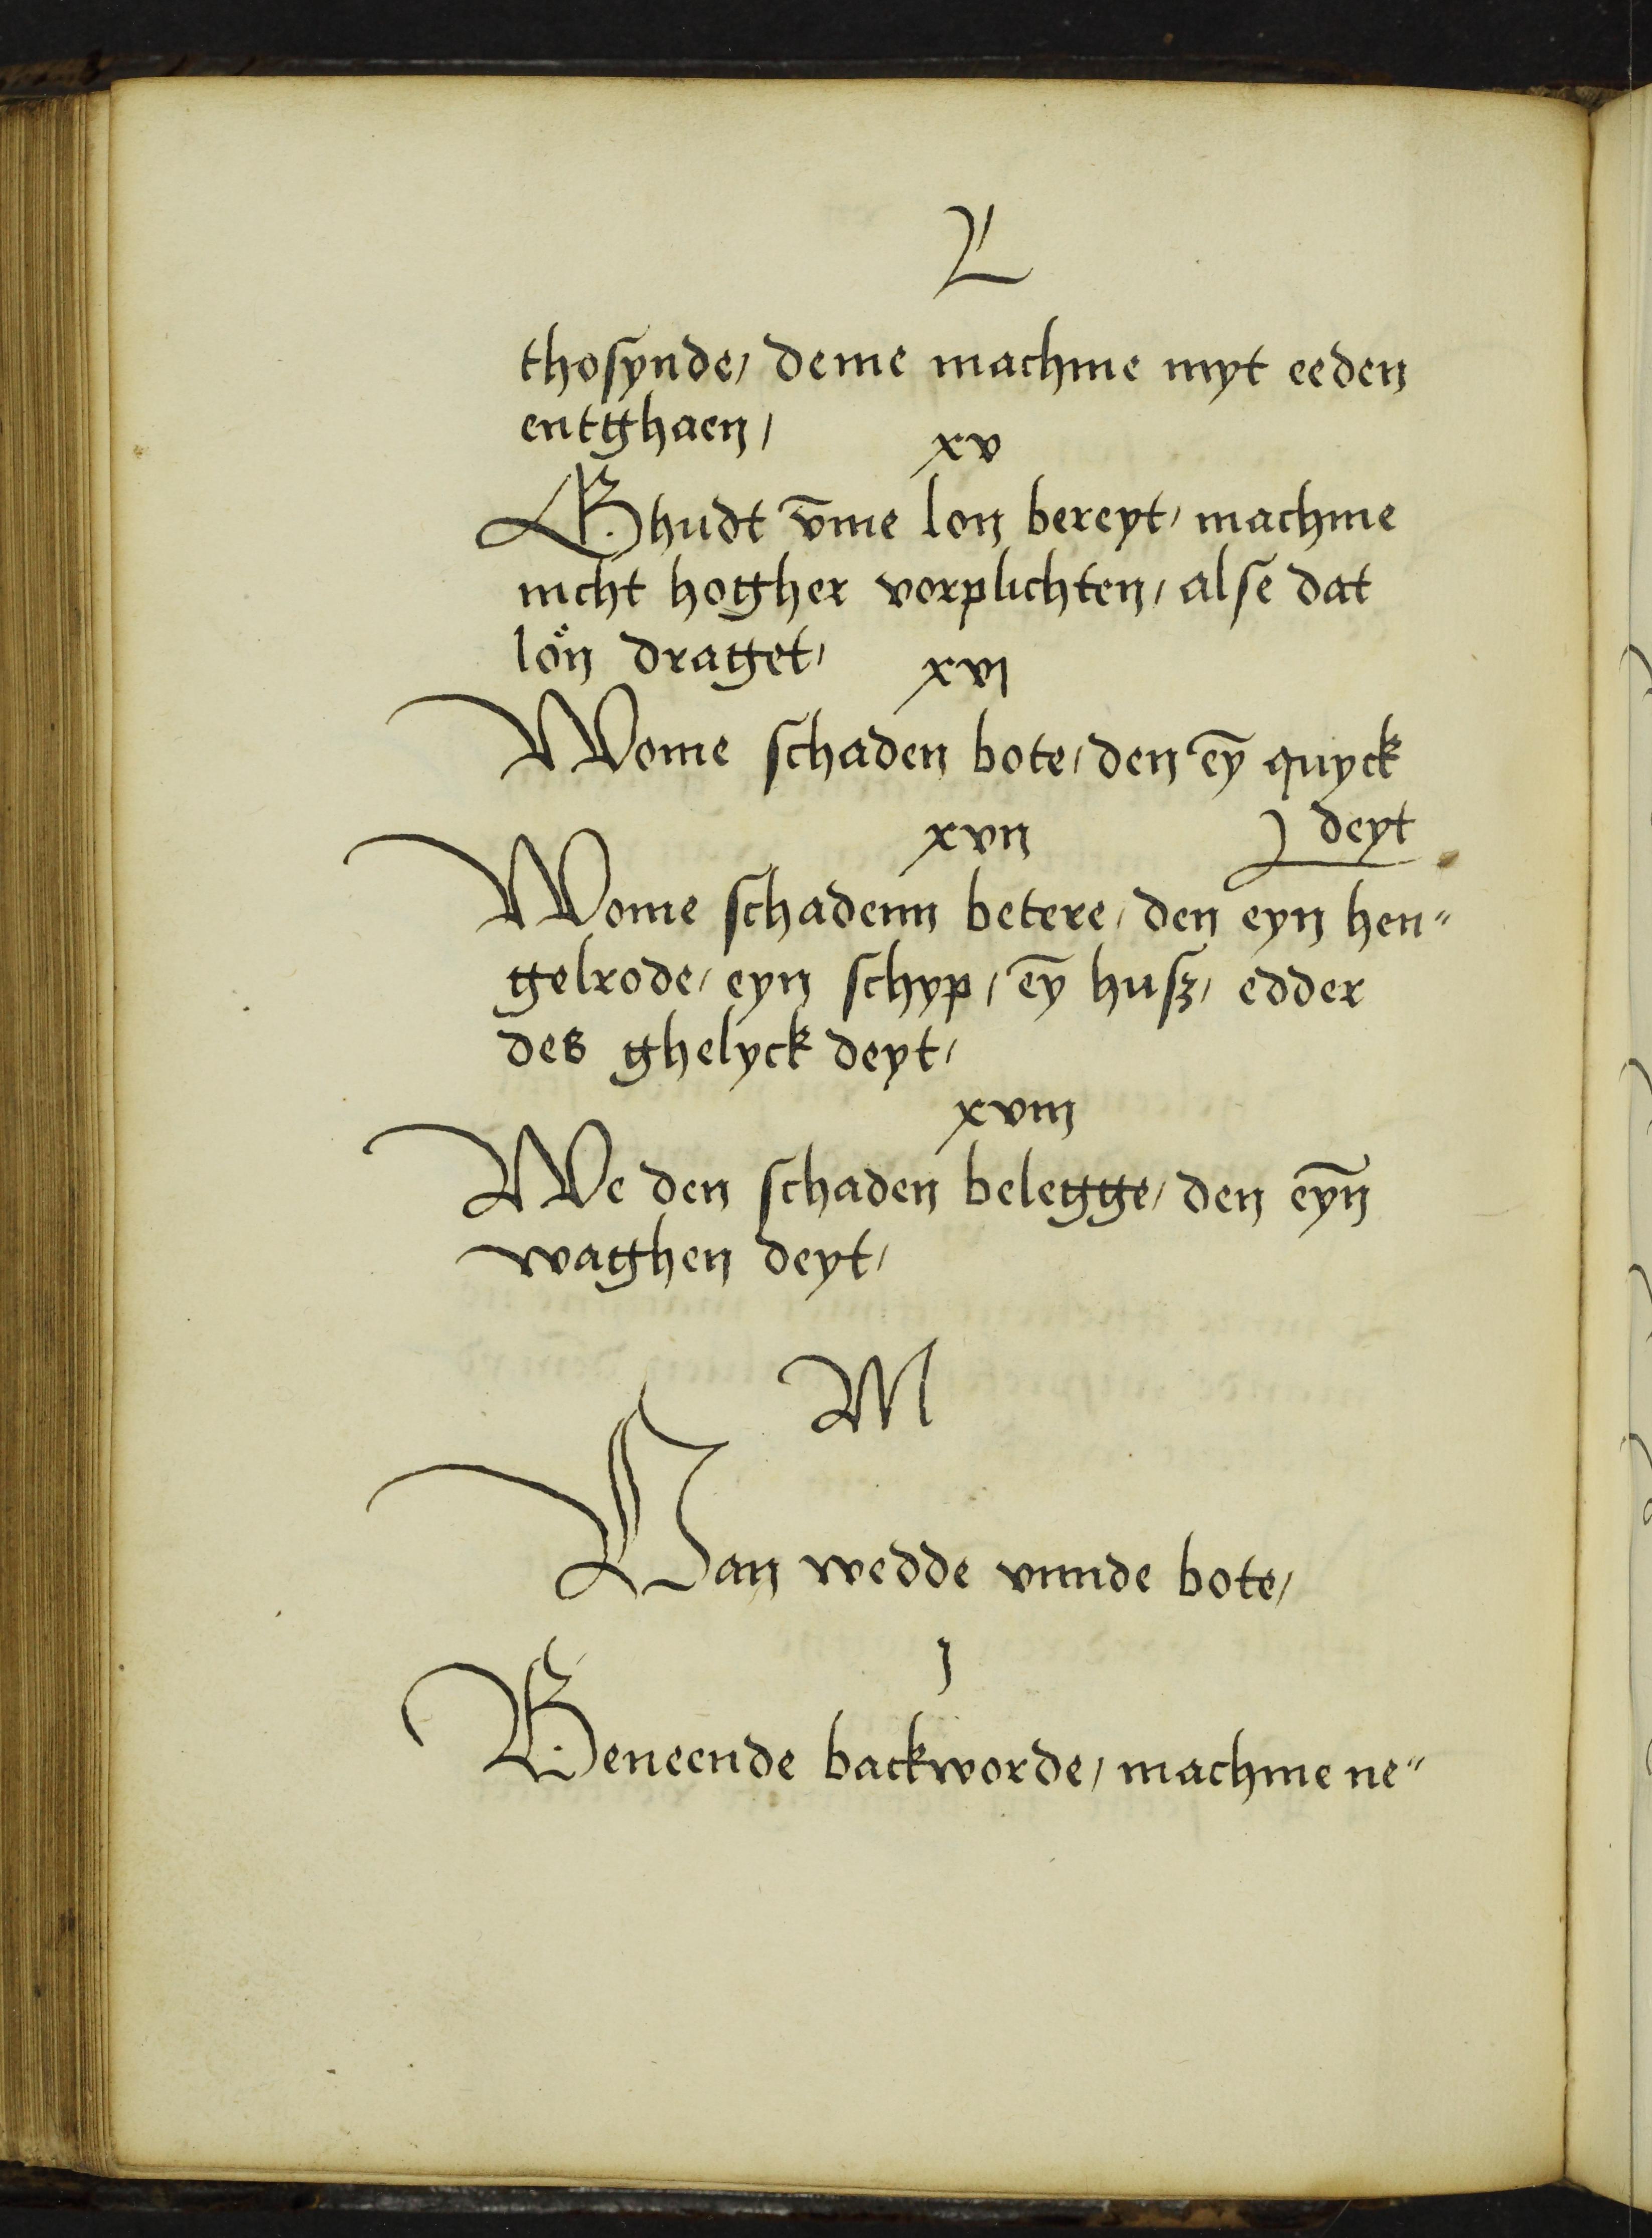 L
thosynde, deme machme myt eeden
entghaen,
xv
Ghudt v̄me lon bereyt, machme
nicht hogher vorplichten, alse dat
lo̊n draget,
xvi
Wome schaden bote, den ey̅ quyck
deyt
xvii
Wome schadenn betere, den eyn hen⸗
gelrode, eyn schyp, ey̅ husz, edder
des ghelyck deyt,
xviii
We den schaden belegge, den ey̅n
waghen deyt,
M
Van wedde vnnde bote,
j
Beneende backworde, machme ne⸗